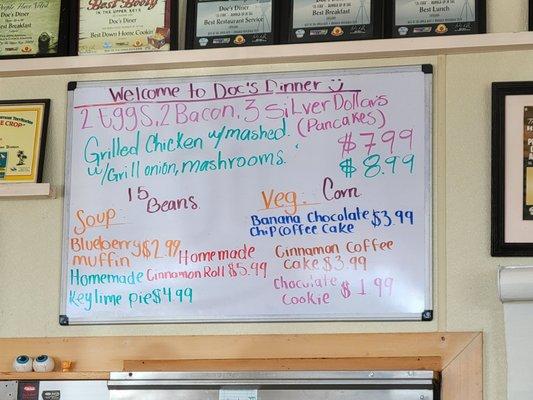 Doc's Diner
Best Down Home Cookin'
Doc's Diner
Best Restaurant Service
Doc's Diner
Best Breakfast
Best Lunch
Welcome to Doc's Dinner
2 Eggs, 2 Bacon, 3 Silver Dollars
(Pancakes)
$7.99
Grilled Chicken w/mashed.
w/Grill onion, mashrooms.
$8.99
15
Beans.
Veg: Corn
Soup
Banana Chocolate
Chip Coffee Cake $3.99
Blueberry $2.99
muffin
Homemade
Cinnamon Roll $5.99
Cinnamon Coffee
Cake $3.99
Homemade
Key lime pie $4.99
Chocolate
Cookie $1.99